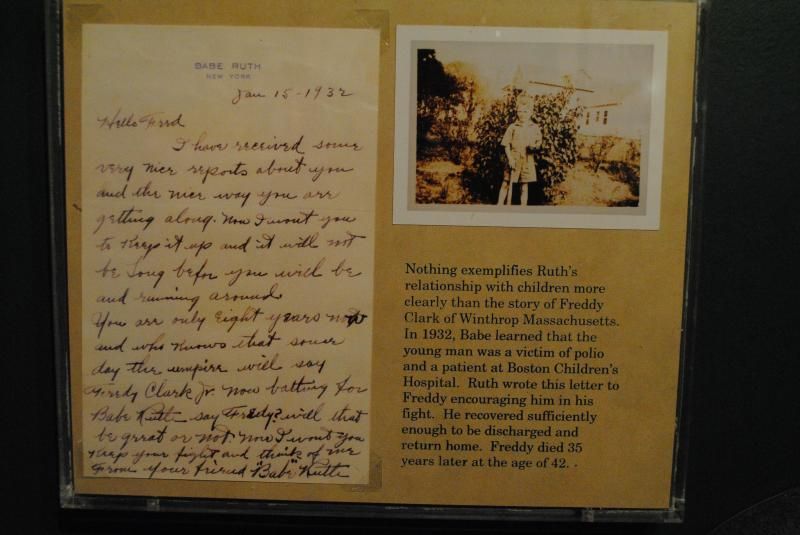 BABE RUTH
NEW YORK
Jan 15-1932
Hello Fred
I have received some
very nice reports about you
and the nice way you are
getting along. Now I wont you
to Keep it up and it will not
be long befor you will be
and running around.
You are only Eight years now
and who Knows that some
day the umpire will say
Fredy Clark Jr. now batting for
Babe Ruth say Fredy? will that
be great or not. Now I wont you
Keep your fight and think of me
From your friend "Babe" Ruth
Nothing exemplifies Ruth's
relationship with children more
clearly than the story of Freddy
Clark of Winthrop Massachusetts.
In 1932, Babe learned that the
young man was a victim of polio
and a patient at Boston Children's
Hospital. Ruth wrote this letter to
Freddy encouraging him in his
fight. He recovered sufficiently
enough to be discharged and
return home. Freddy died 35
years later at the age of 42.